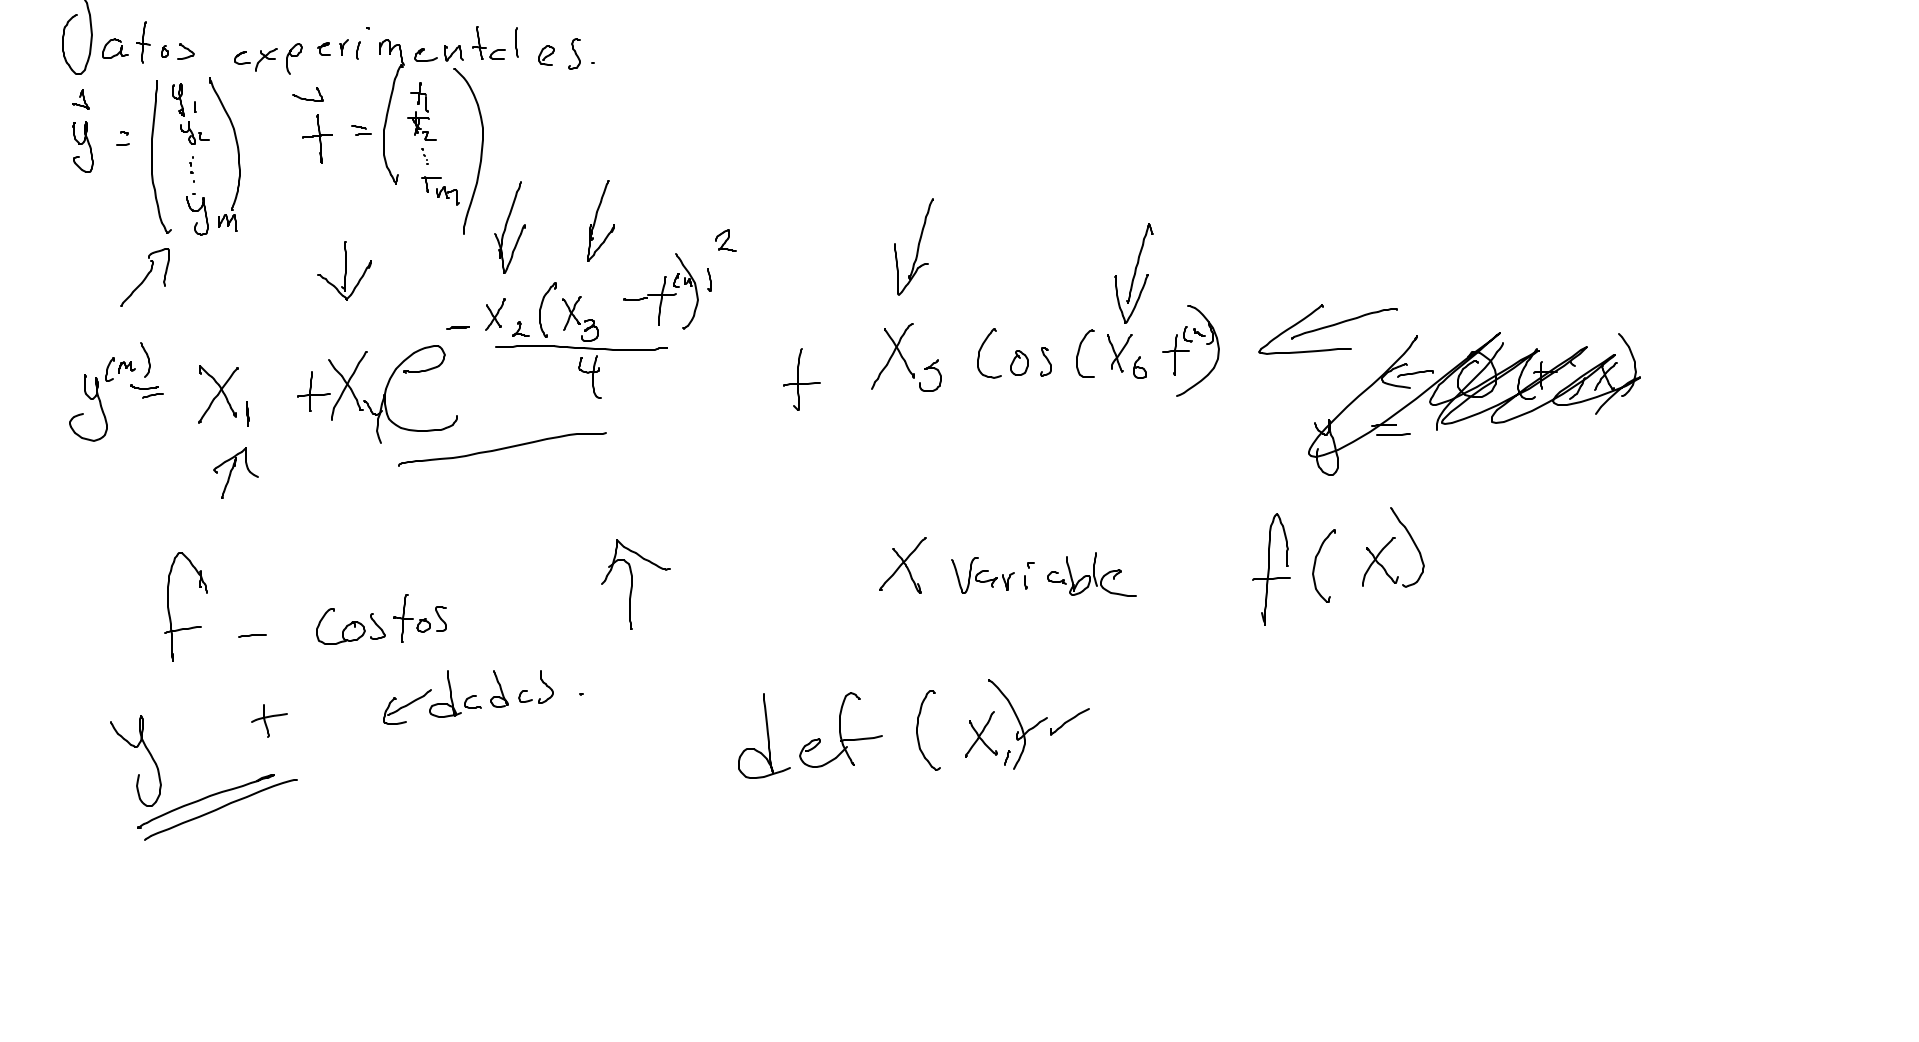 Datos experimentales.
y⃗ = (y₁ y₂ ⋮ yₘ) t⃗ = (t₁ t₂ ⋮ tₘ)
y⁽ᵐ⁾ = x₁ + x₄ e^(-x₂(x₃ - t⁽ⁿ⁾)²/4) + x₅ Cos(x₆ t⁽ⁿ⁾)
y =
f - costos
x variable f(x)
y + edades.
def (x,